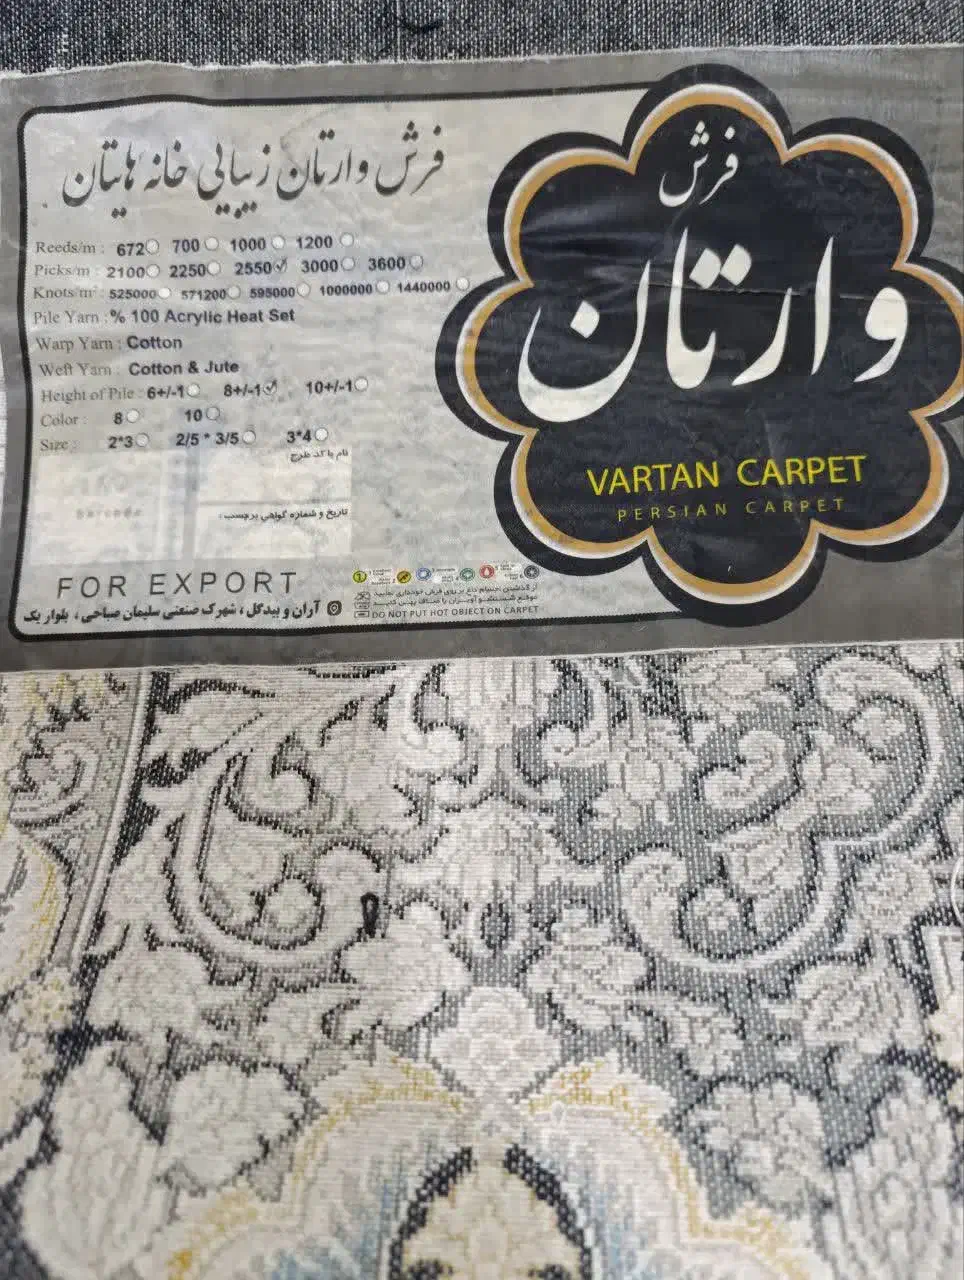 فرش وارتان زیبایی خانه هایتان
Reeds/m : 672 700 1000 1200
Picks/m : 2100 2250 2550 3000 3600
Knots/m² : 525000 571200 595000 1000000 1440000
Pile Yarn : % 100 Acrylic Heat Set
Warp Yarn : Cotton
Weft Yarn : Cotton & Jute
Height of Pile : 6+/-1 8+/-1 10+/-1
Color : 8 10
Size : 2*3 2/5 * 3/5 3*4
نام یا کد طرح
تاریخ و شماره گواهی برچسب :
FOR EXPORT
آران و بیدگل ، شهرک صنعتی سلیمان صباحی ، بلوار یک
DO NOT PUT HOT OBJECT ON CARPET
فرش
وارتان
VARTAN CARPET
PERSIAN CARPET